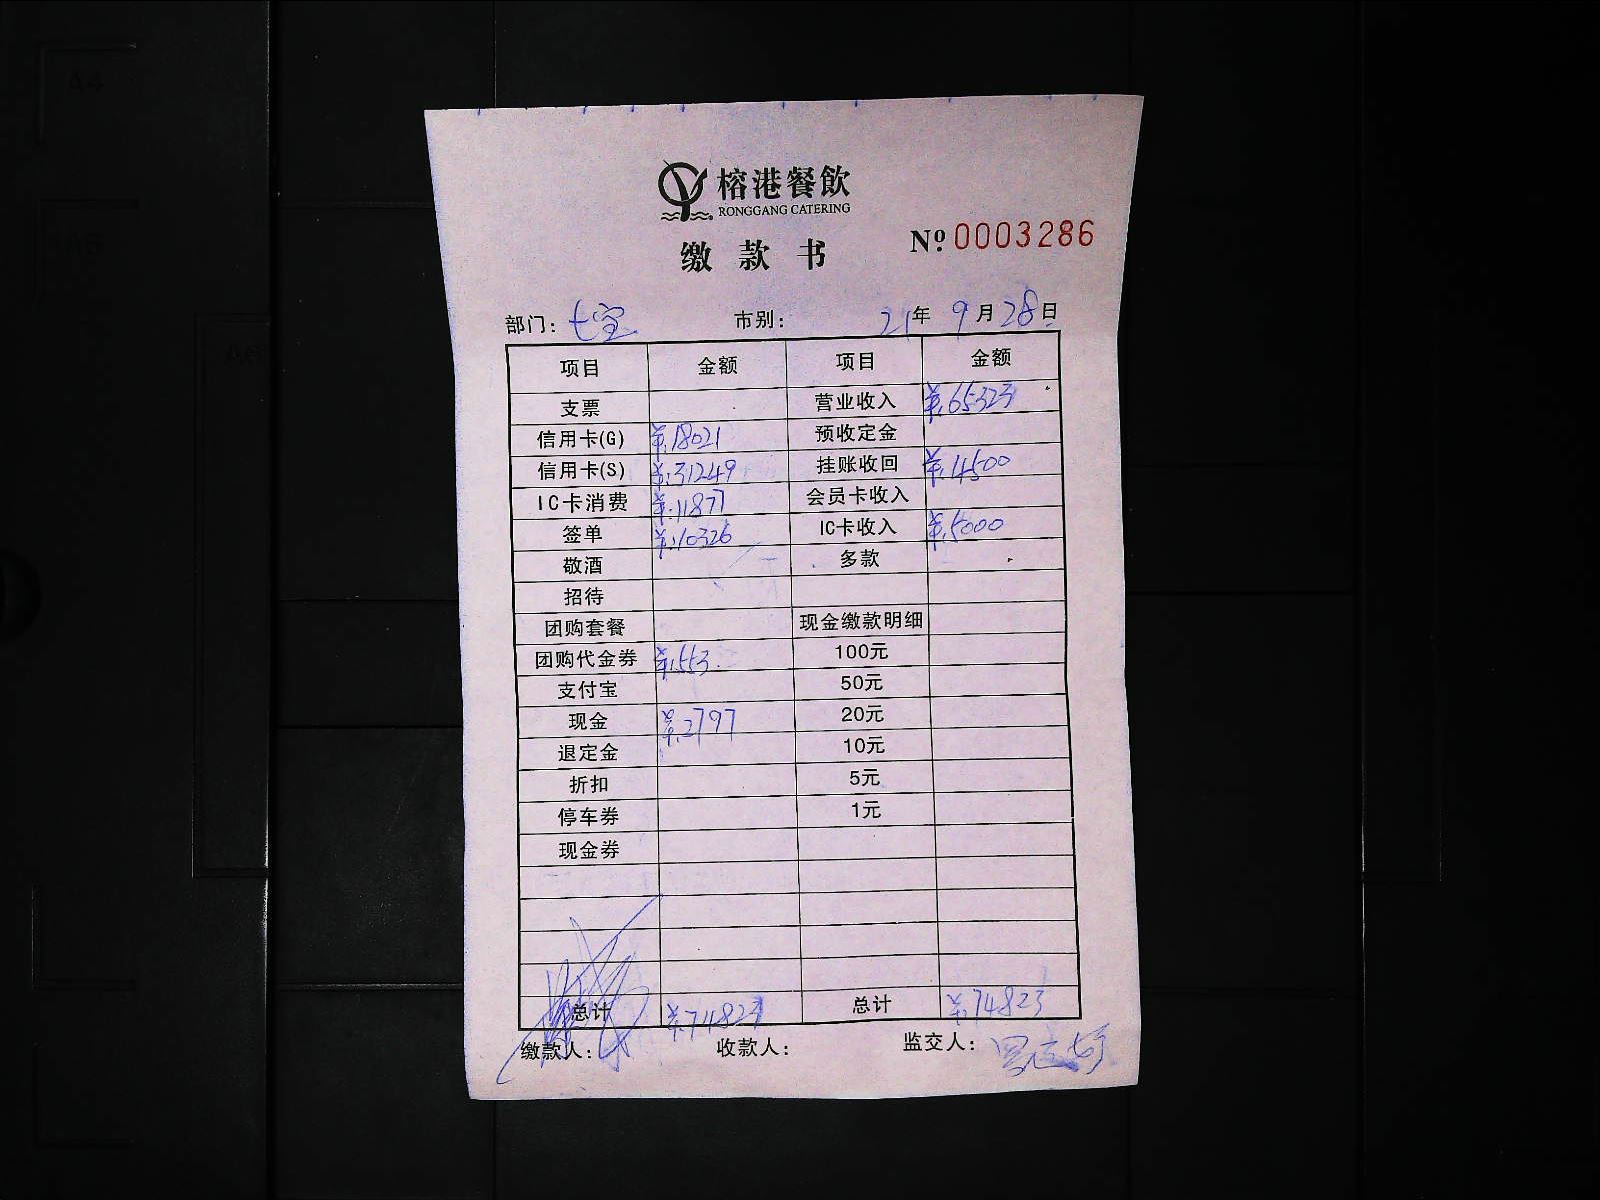 榕港餐飲
RONGGANG CATERING
缴款书
№ 0003286
部门: 七宝 市别: 21年 9月 28日
项目 金额 项目 金额
支票 营业收入 ¥65323
信用卡(G) ¥18021 预收定金
信用卡(S) ¥31249 挂账收回 ¥4500
IC卡消费 ¥11877 会员卡收入
签单 ¥10326 IC卡收入 ¥5000
敬酒 多款
招待
团购套餐 现金缴款明细
团购代金券 ¥553 100元
支付宝 50元
现金 ¥2797 20元
退定金 10元
折扣 5元
停车券 1元
现金券
总计 ¥74823 总计 ¥74823
缴款人: 收款人: 监交人: